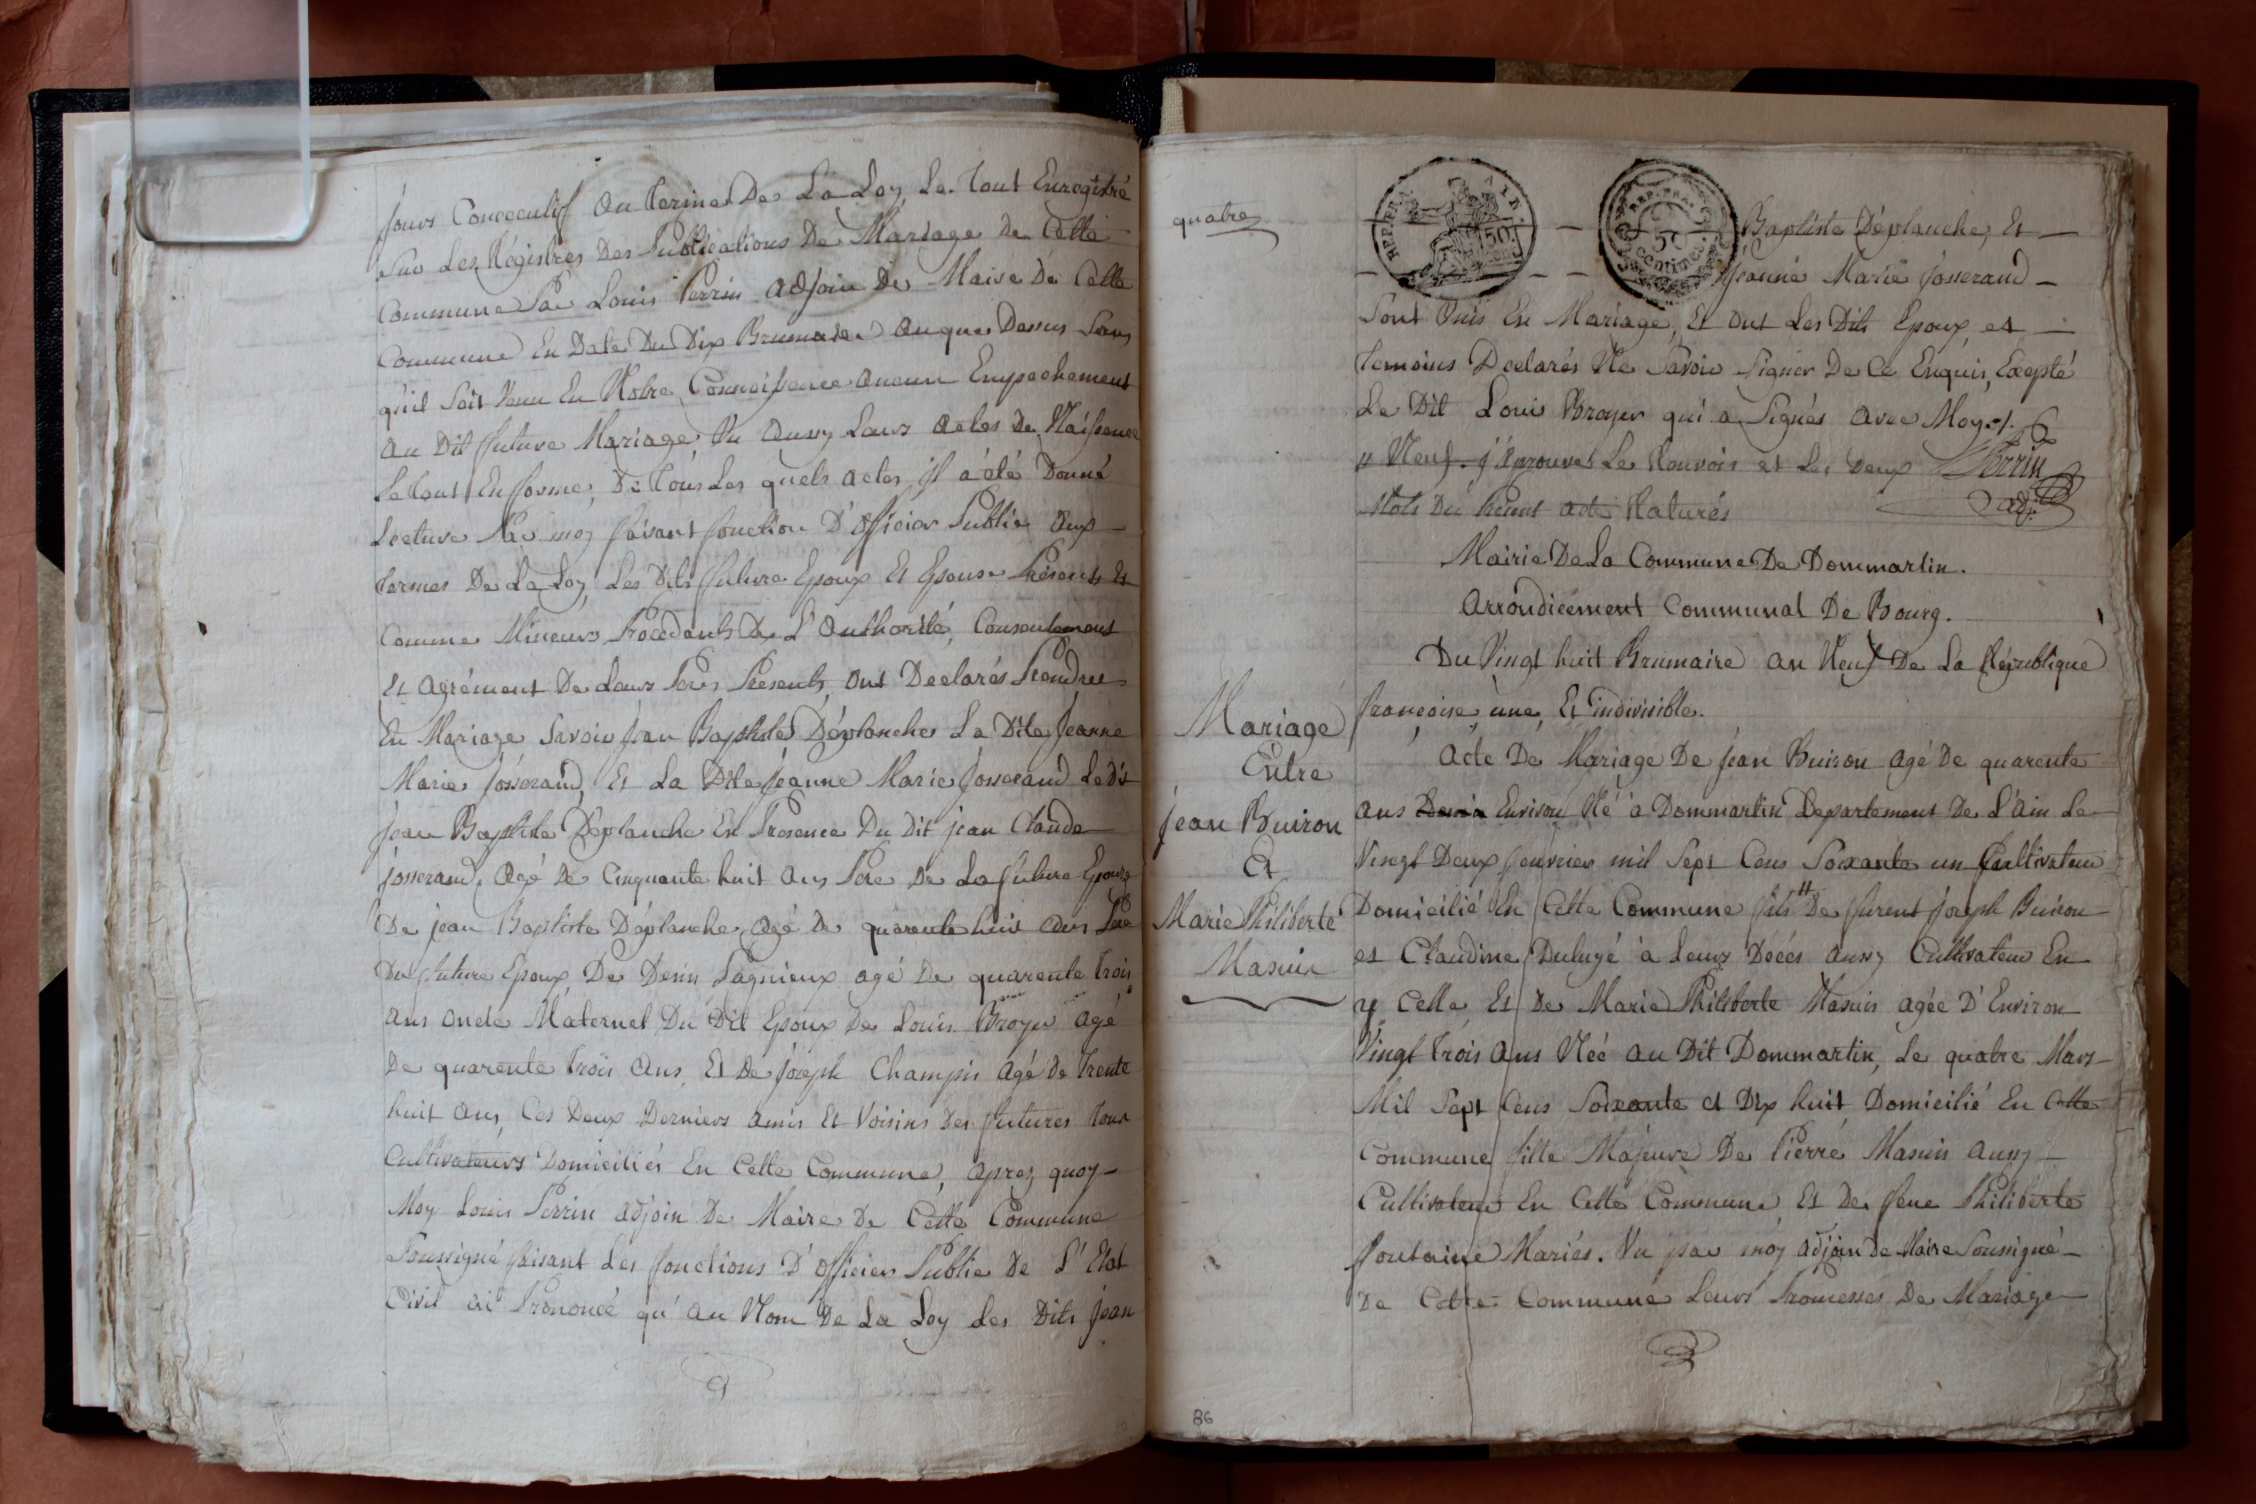 jours Consecutif Au Terme De La Loy, Le Tout Enregistré
Sur Les Régistres Des Publications De Mariage De Cette
Commune Par Louis Perrin Adjoin De Maire De Cette
Commune En Date Du Dix Brumaire An que Dessus Sans
qu'il Soit Venu En Notre Connoissance Aucun Empechement
Au Dit future Mariage, Vu Aussy Leurs Actes De Naissance
Le tout En forme, De Tous Les quels Actes, il a été Donné
Lecture Par moy faisant fonction D'Officier Public Aux
Termes De La Loy, Les Dits future Epoux Et Epouse Présents Et
Comme Mineurs Procedants De L'Authorité, Consentement
Et Agrément De Leurs Peres Presents, Ont Declarés Prendre
En Mariage Savoir Jean Baptiste Déplanche La Dite Jeanne
Marie Josserand, Et La Dite Jeanne Marie Josserand Le dit
Jean Baptiste Déplanche En Presence Du Dit jean Claude
Josserand, Agé De Cinquante huit Ans Pere De La future Epouse
De jean Baptiste Déplanche, agé De quarente huit Ans Pere
Du future Epoux, De Denis Pagnieux agé De quarente Trois
Ans Oncle Maternel Du Dit Epoux De Louis Broyer Agé
De quarente trois Ans, Et De Joseph Champin Agé De Trente
huit Ans, Ces Deux Derniers Amis Et Voisins Des futures Tous
Cultivateurs Domiciliés En Cette Commune, après quoy
Moy Louis Perrin Adjoin De Maire De Cette Commune
Soussigné faisant Les fonctions D'Officier Public De L'Etat
Civil ai Prononcé qu'au Nom De La Loy Les Dits Jean
quatre
Baptiste Déplanche, Et
Jeanne Marie Josserand
Sont Unis En Mariage, Et Ont Les Dits Epoux et
Temoins Declarés Ne Savoir Signer De Ce Enquis, Excepté
Le Dit Louis Broyer qui a Signés Avec Moy
" Neuf. j'aprouve Le Renvois et Les Deux Perrin
Mots Du Présent Acte Raturés adj.
Mairie De La Commune De Dommartin.
Arrondicement Communal De Bourg.
Du Vingt huit Brumaire An Neuf De La République
françoise, une, Et indivisible.
Mariage
Entre
Jean Buiron
Et
Marie Philiberte
Masuin
Acte De Mariage De Jean Buiron Agé De quarente
Ans Environ Né à Dommartin Departement De L'Ain Le
Vingt Deux fevrier mil Sept Cens Soixante un Cultivateur
Domicilié En Cette Commune fils De furent Joseph Buiron
et Claudine Dulugé à Leurs Décès Aussy Cultivateur En
y Celle Et De Marie Philiberte Masuin Agée D'Environ
Vingt Trois Ans Née Au Dit Dommartin, Le quatre Mars
Mil Sept Cens Soixante et Dix huit Domicilié En Cette
Commune fille Majeure De Pierre Masuin Aussy
Cultivateur En Cette Commune Et De feue Philiberte
fontaine Mariés. Vu par moy Adjoin De Maire Soussigné
De Cette Commune Leurs Promesses De Mariage
86